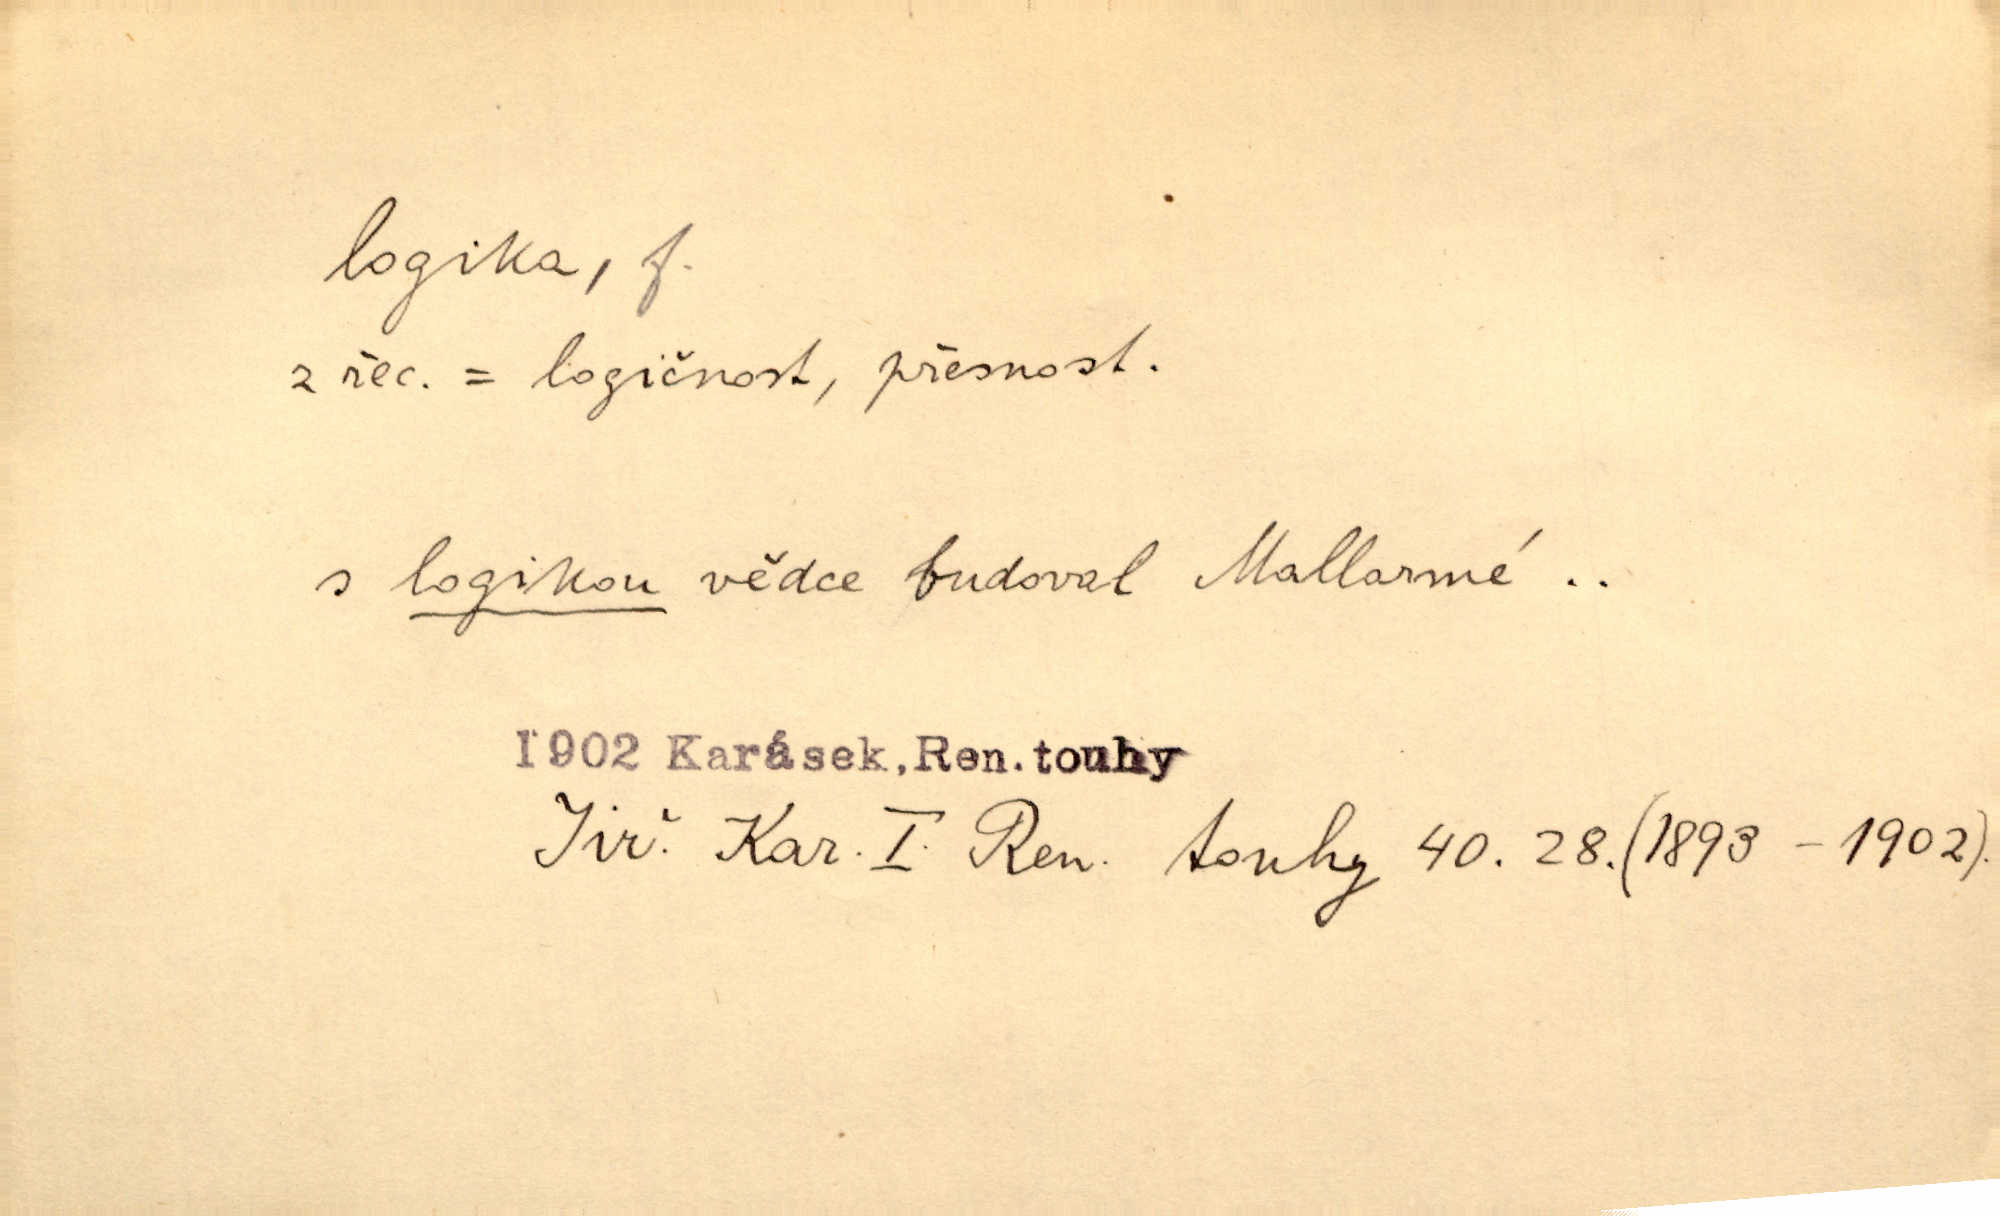 logika, f.
z řec. = logičnost, přesnost.
s logikou vědce budoval Mallarmé ..
1902 Karásek, Ren. touhy
Jiř. Kar. I. Ren. touhy 40. 28. (1893 – 1902).